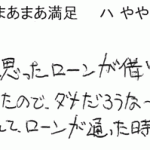 まあまあ満足　ハ やや
思ったローンが借り
たので、ダメだろうなー
して、ローンが通った時